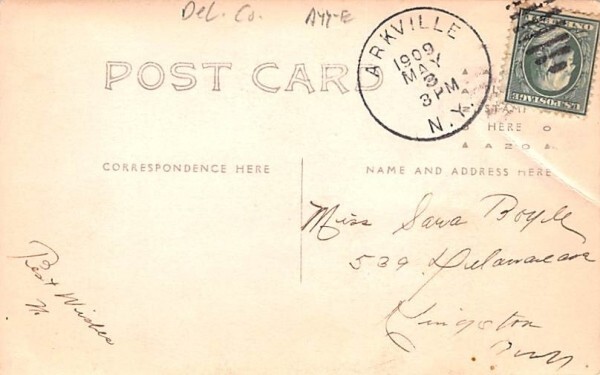 Del. Co.
POST CARD
ARKVILLE
1909
MAY
3
3 PM
N.Y.
U.S. POSTAGE
STAMP
HERE
AZO
CORRESPONDENCE HERE
NAME AND ADDRESS HERE
Miss Sara Boyle
539 Delaware Ave
Kingston
N.Y.
Best Wishes
N.